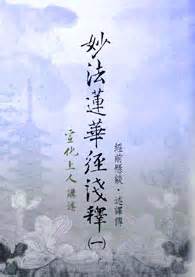 妙法蓮華經淺釋(一)
宣化上人 講述
經前懸談・述譯傳